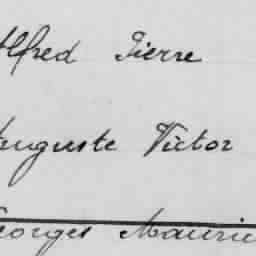 Alfred Pierre
Auguste Victor
Georges Mauric